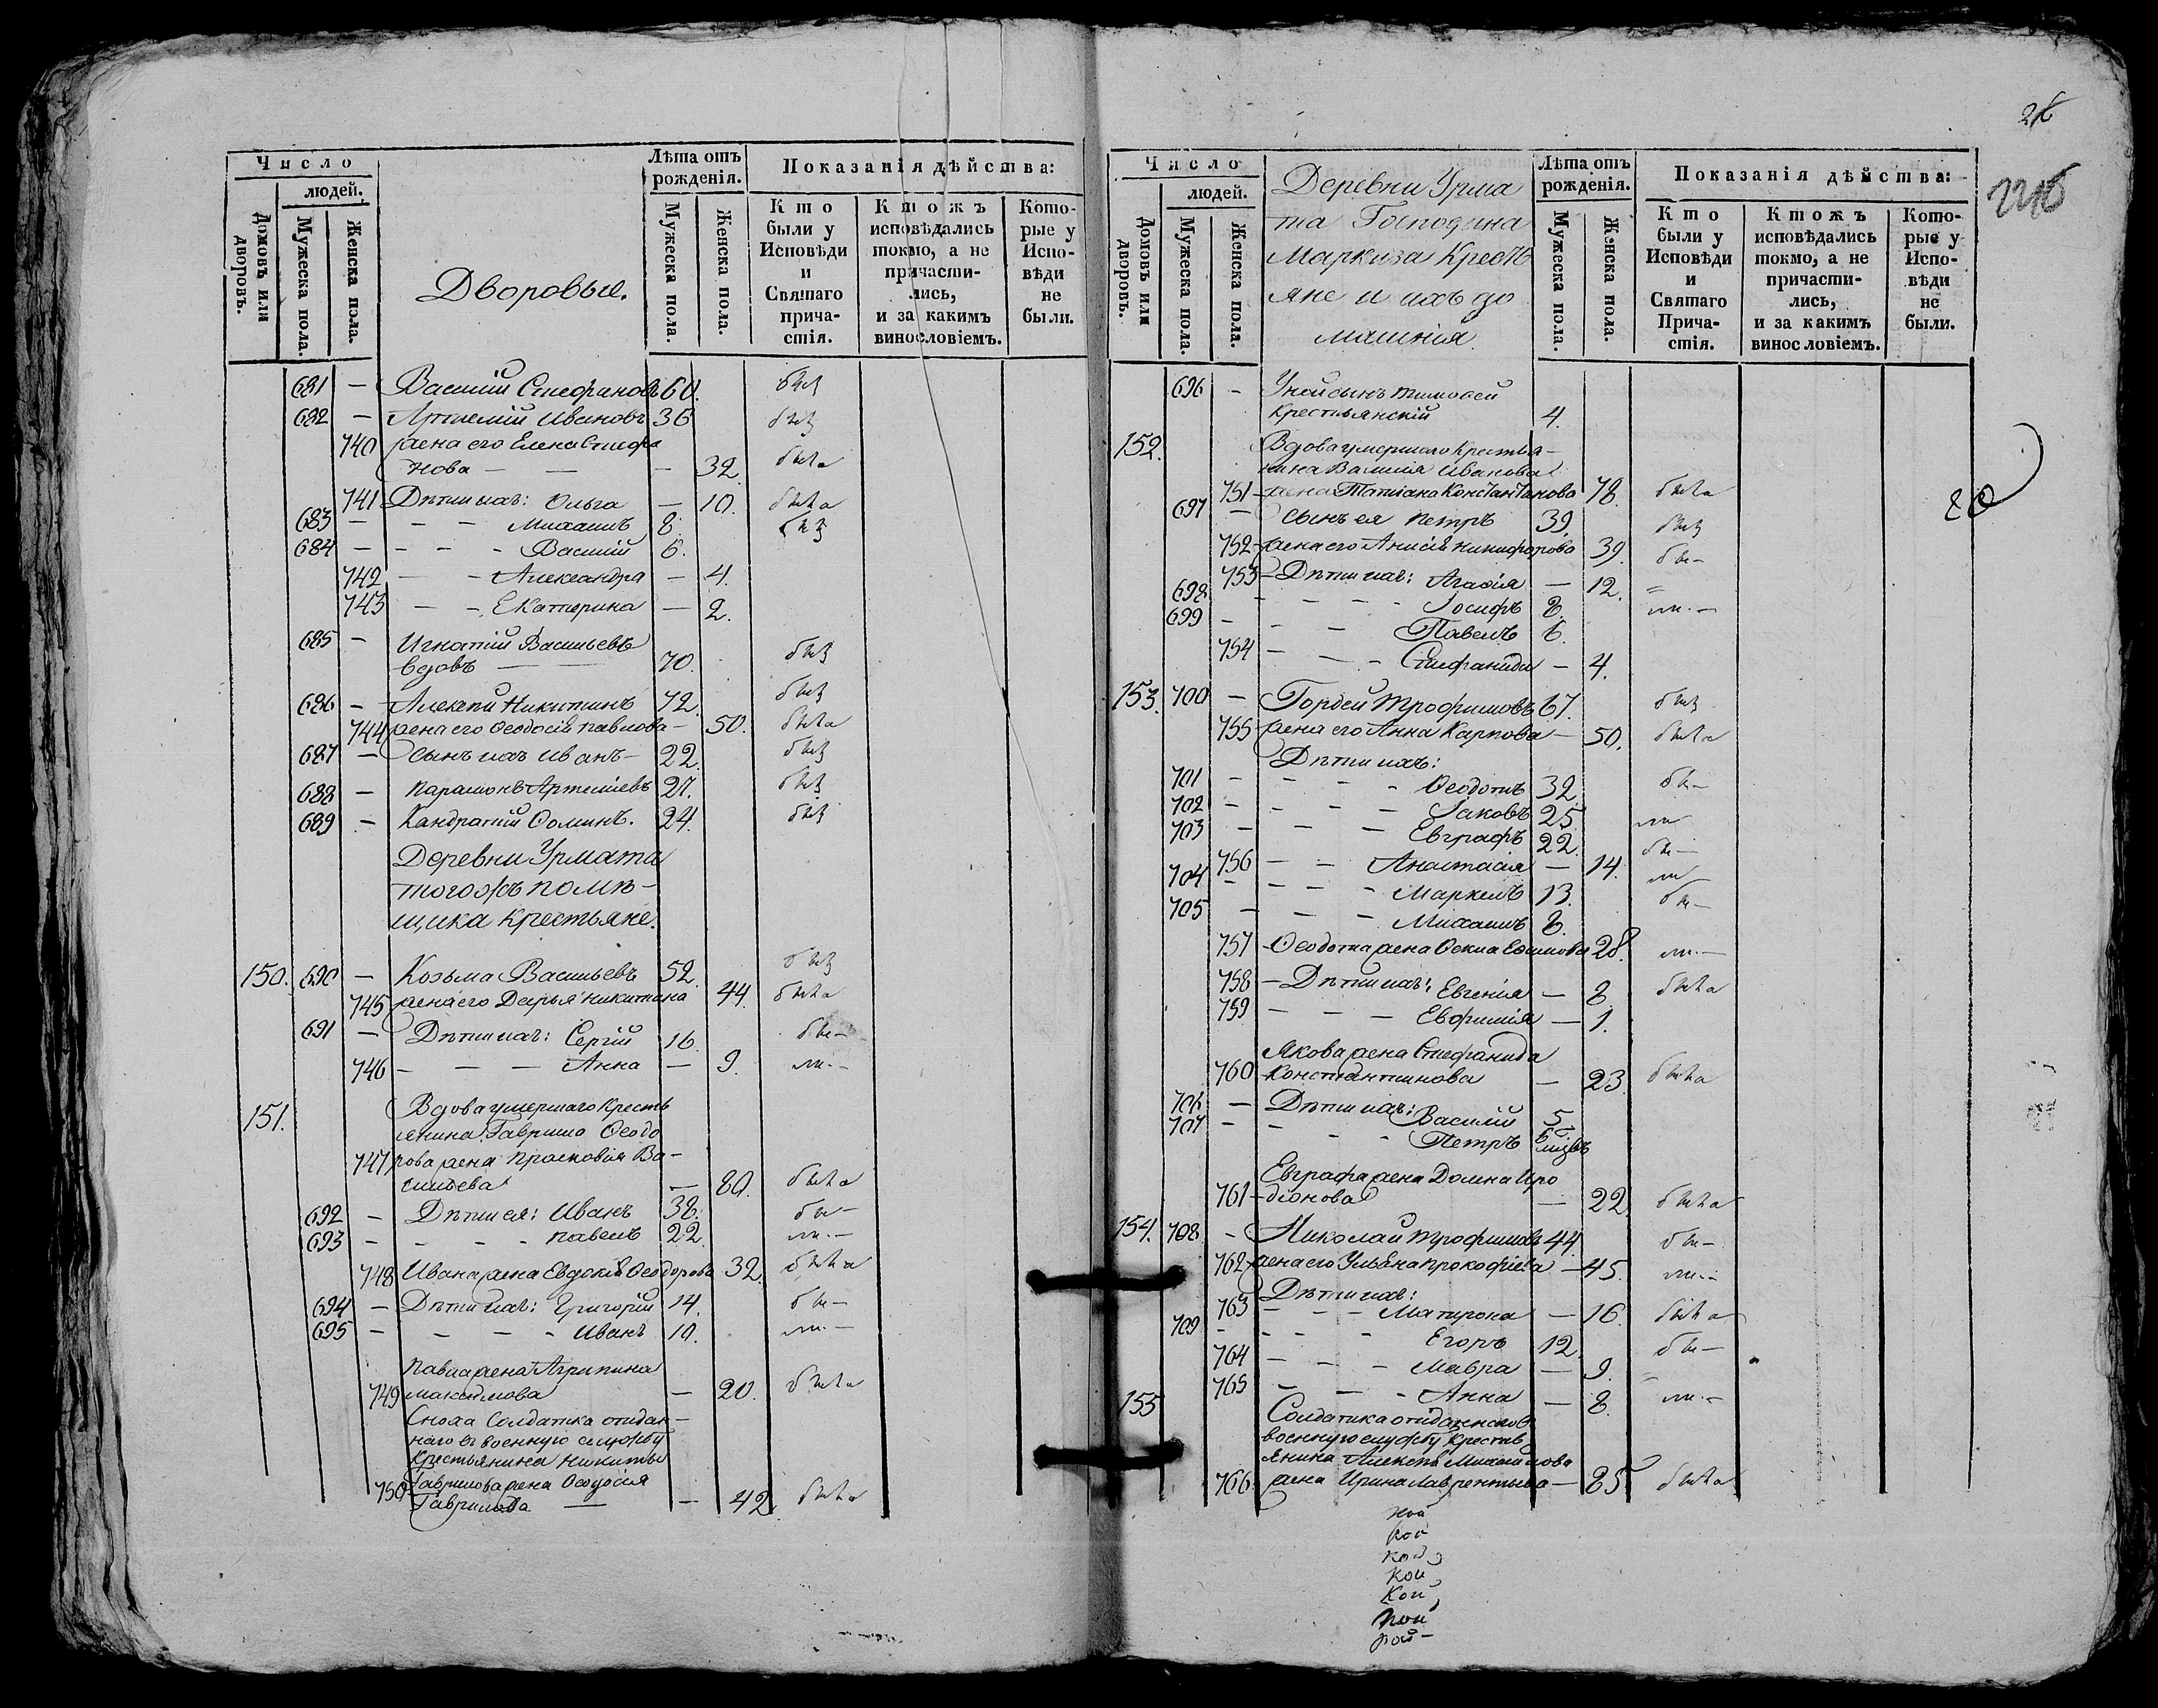 Число
людей.
Домовъ или дворовъ.
Мужеска пола.
Женска пола.
Дворовые.
Лѣта отъ рожденія.
Мужеска пола.
Женска пола.
Показанія дѣйства:
Кто были у Исповѣди и Святаго причастія.
Ктожъ исповѣдались токмо, а не причастились, и за какимъ винословіемъ.
Которые у Исповѣди не были.
681 — Василій Стефановъ 60. былъ
682 — Артемій Ивановъ 36 былъ
740 жена его Елена Стефа
нова — — — 32. была
741 Дѣти ихъ: Ольга — 10. была
683 — — — Михаилъ 8. былъ
684 — — — Василій 6.
742 — — Александра — 4.
743 — — Екатерина — 2.
685 — Игнатій Васильевъ
вдовъ — 70. былъ
686 — Алексѣй Никитинъ 72. былъ
744 жена его Ѳеодосія Павлова — 50. была
687 — Сынъ ихъ Иванъ — 22. былъ
688 — Парамонъ Артеміевъ 27. былъ
689 — Кандратій Ѳоминъ. 24. былъ
Деревни Урмата
тогожъ помѣ-
щика крестьяне.
150. 690 — Козьма Васильевъ 52. былъ
745 жена его Дарья Никитина 44. была
691 — Дѣти ихъ: Сергій 16. бы-
746 — — — Анна — 9. ли.-
151. Вдова умершаго кресть
янина Гаврила Ѳеодо
747 рова жена Прасковія Ва-
сильева — 80. была
692 — Дѣти ея: Иванъ 38. бы-
693 — — — Павелъ 22. ли.-
748 Ивана жена Евдокія Ѳеодорова 32. была
694 — Дѣти ихъ: Григорій 14. бы-
695 — — — Иванъ 10. ли.-
Павла жена Агрипина
749 Максимова — 20. была
Сноха Солдатка отдан-
наго въ военную службу
Крестьянина Никиты
750 Гаврилова жена Ѳеодосія
Гаврилова — — 42. была
26
Число
людей.
Домовъ или дворовъ.
Мужеска пола.
Женска пола.
Деревни Урма
та Господина
Маркиза Кресть
яне и ихъ до
машнія
Лѣта отъ рожденія.
Мужеска пола.
Женска пола.
Показанія дѣйства:
Кто были у Исповѣди и Святаго Причастія.
Ктожъ исповѣдались токмо, а не причастились, и за какимъ винословіемъ.
Которые у Исповѣди не были.
696 — У ней сынъ Тимоѳей
Крестьянскій 4.
152. Вдова умершаго крестья-
нина Василія Иванова
751 жена Татіана Константинова 78. была
697 — Сынъ ея Петръ 39. былъ
752 жена его Анисія Никифорова 39. бы-
753 — Дѣти ихъ: Агаѳія — 12. =
698 — — — Іосифъ 8. ли.-
699 — — — Павелъ 6.
754 — — — Стефанида — 4.
153. 700 — Гордей Трофимовъ 67. былъ
755 жена его Анна Карпова — 50. была
Дѣти ихъ:
701 — — — Ѳеодотъ 32. бы-
702 — — — Іаковъ 25. ли
703 — — — Евграфъ 22. бы-
756 — — Анастасія — 14. ли
704 — — — Маркелъ 13. бы-
705 — — — Михаилъ 8.
757 — Ѳеодота жена Ѳекла Еѳимова 28. ли.-
758 — Дѣти ихъ: Евгенія — 8. была
759 — — — Евфимія — 1.
Якова жена Стефанида
760 Константинова — 23. была
706 — Дѣти ихъ:
Василій 5
707 — — — Петръ
Евграфа жена Домна Иро
761 діонова — 22. была
154. 708. — Николай Трофимовъ 44. бы-
762 жена его Ульяна Прокофіева — 45. ли.-
Дѣти ихъ:
763 — — — Матрона — 16. была
709 — — — Егоръ 12. бы-
764 — — — Мавра — 9. —
765 — — — Анна — 8. ли.-
155 Солдатка отданнаго въ
военную службу кресть
янина Алексѣя Михайлова
766 жена Ирина Лаврентьева — 85. была
кой
кой
кой